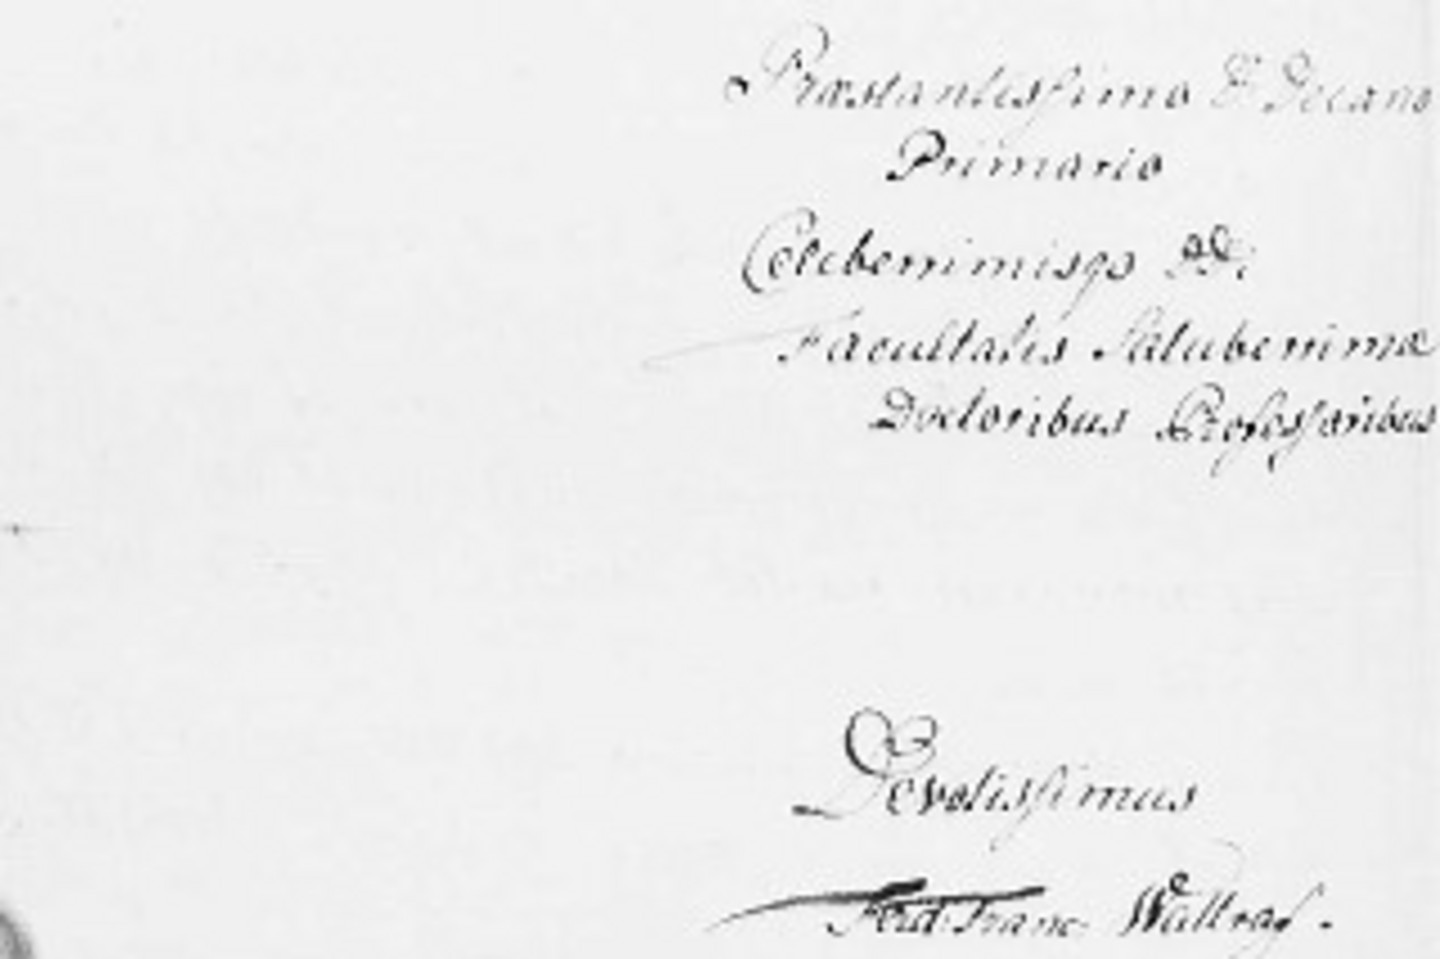 Præstantissimo D. Decano
Primario
Celeberrimisq3 DD.
Facultatis Saluberrimæ
Doctoribus Professoribus
Devotissimus
Ferd: Franc: Wallraf.